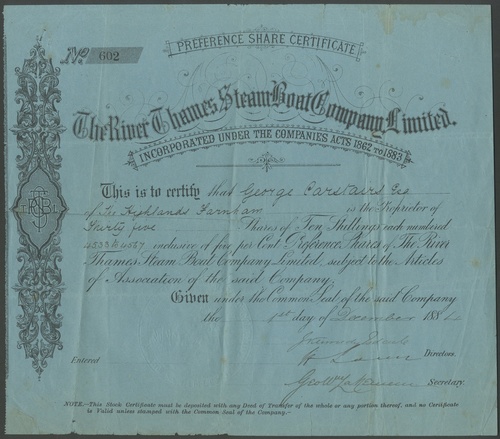 No. 602
PREFERENCE SHARE CERTIFICATE
The River Thames Steam Boat Company Limited.
INCORPORATED UNDER THE COMPANIES ACTS 1862 TO 1883
This is to certify that George Carstairs Esq
of The Highlands Farnham is the Proprietor of
Thirty five Shares of Ten Shillings each numbered
4533 to 4567 inclusive of five per Cent Preference Shares of The River
Thames Steam Boat Company Limited, subject to the Articles
of Association of the said Company.
Given under the Common Seal of the said Company
the 1st day of December 188
Directors.
Entered
Secretary.
NOTE.—This Stock Certificate must be deposited with any Deed of Transfer of the whole or any portion thereof, and no Certificate
is Valid unless stamped with the Common Seal of the Company.—